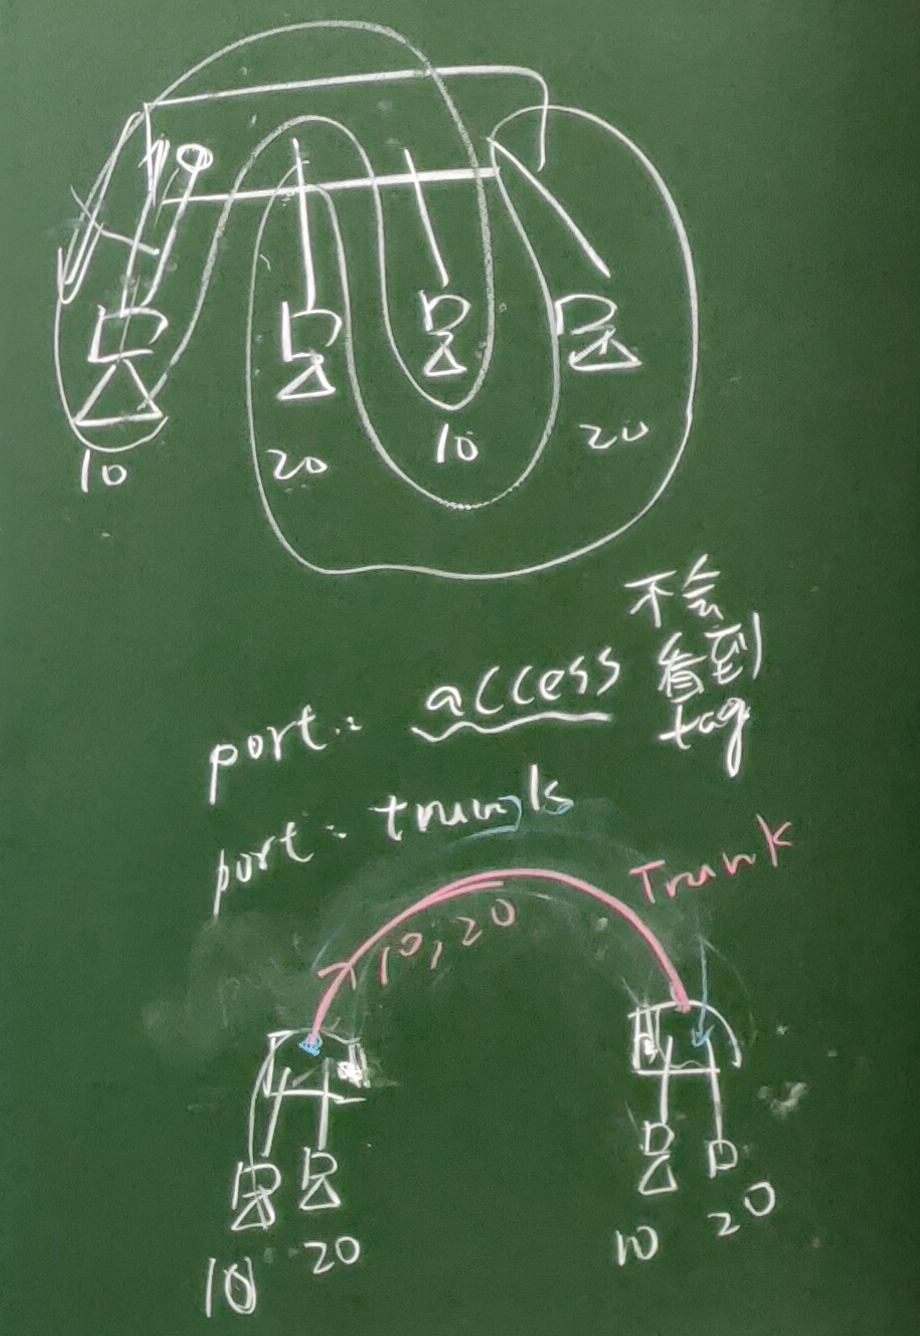 10 20 10 20
port: access 不会
看到
tag
port: trunk
Trunk
10, 20
10 20 10 20